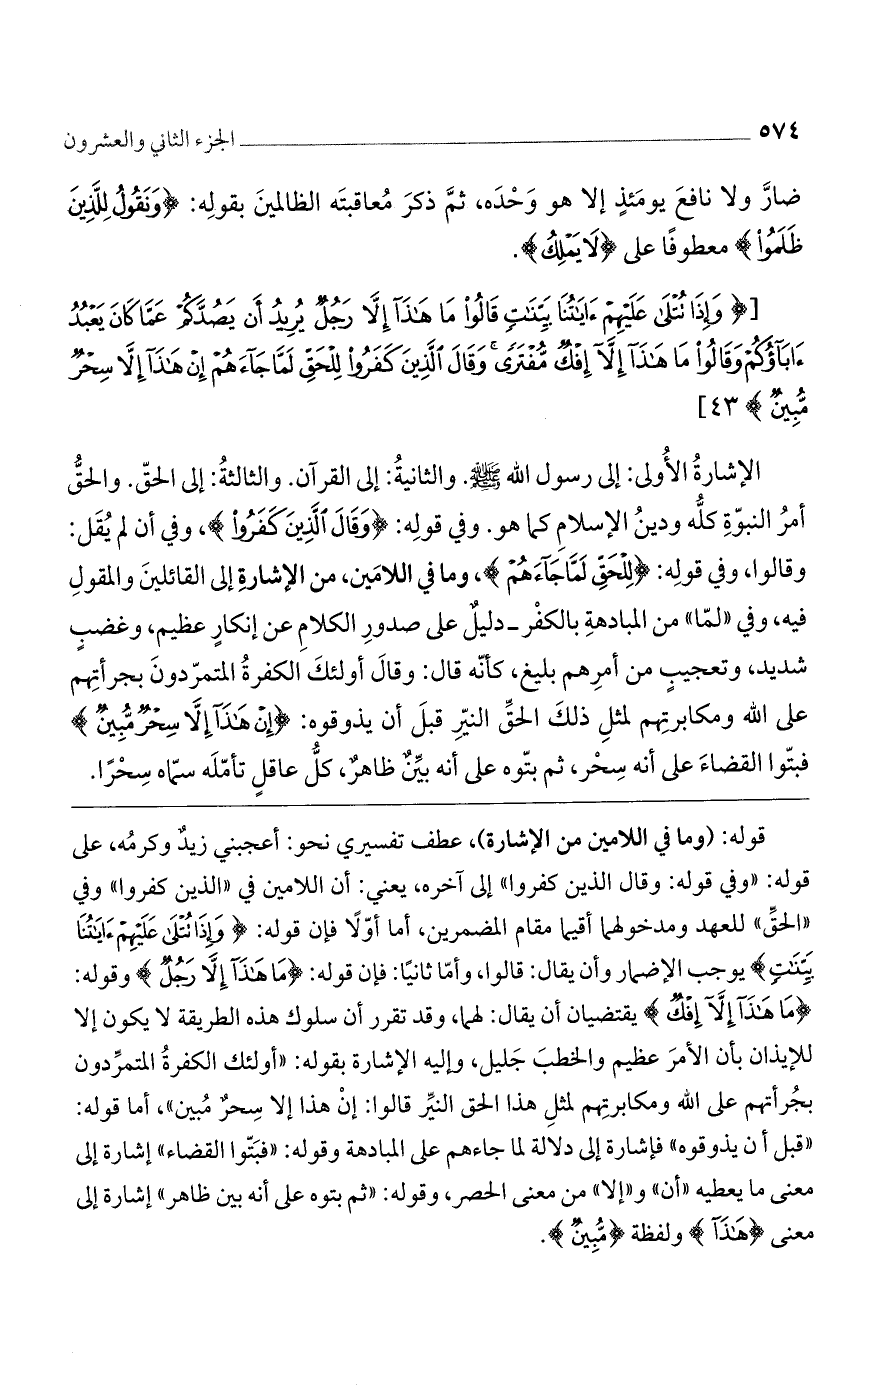 ٥٧٤ الجزء الثاني والعشرون
ضارَّ ولا نافعَ يومَئذٍ إلا هو وَحْدَه، ثمَّ ذكرَ مُعاقبتَه الظالمينَ بقولِه: ﴿وَنَقُولُ لِلَّذِينَ
ظَلَمُوا۟﴾ معطوفًا على ﴿لَا يَمْلِكُ﴾.
[﴿ وَإِذَا تُتْلَىٰ عَلَيْهِمْ ءَايَٰتُنَا بَيِّنَٰتٍ قَالُوا۟ مَا هَٰذَآ إِلَّا رَجُلٌ يُرِيدُ أَن يَصُدَّكُمْ عَمَّا كَانَ يَعْبُدُ
ءَابَآؤُكُمْ وَقَالُوا۟ مَا هَٰذَآ إِلَّآ إِفْكٌ مُّفْتَرًى ۚ وَقَالَ ٱلَّذِينَ كَفَرُوا۟ لِلْحَقِّ لَمَّا جَآءَهُمْ إِنْ هَٰذَآ إِلَّا سِحْرٌ
مُّبِينٌ ﴾ ٤٣]
الإشارةُ الأُولى: إلى رسول الله ﷺ. والثانيةُ: إلى القرآن. والثالثةُ: إلى الحقّ. والحقُّ
أمرُ النبوّةِ كلُّه ودينُ الإسلامِ كما هو. وفي قولِه: ﴿وَقَالَ ٱلَّذِينَ كَفَرُوا۟ ﴾، وفي أن لم يُقَل:
وقالوا، وفي قولِه: ﴿لِلْحَقِّ لَمَّا جَآءَهُمْ ﴾، وما في اللامَين، من الإشارةِ إلى القائلينَ والمقولِ
فيه، وفي «لمّا» من المبادهةِ بالكفْر ـ دليلٌ على صدورِ الكلامِ عن إنكارٍ عظيم، وغضبٍ
شديد، وتعجيبٍ من أمرِهم بليغ، كأنّه قال: وقالَ أولئكَ الكفرةُ المتمرّدونَ بجرأتِهم
على الله ومكابرتِهم لمثلِ ذلكَ الحقِّ النيّرِ قبلَ أن يذوقوه: ﴿إِنْ هَٰذَآ إِلَّا سِحْرٌ مُّبِينٌ ﴾
فبتّوا القضاءَ على أنه سِحْر، ثم بتّوه على أنه بيِّنٌ ظاهرٌ، كلُّ عاقلٍ تأمّلَه سمّاه سِحْرًا.
قوله: (وما في اللامين من الإشارة)، عطف تفسيري نحو: أعجبني زيدٌ وكرمُه، على
قوله: «وفي قوله: وقال الذين كفروا» إلى آخره، يعني: أن اللامين في «الذين كفروا» وفي
«الحقِّ» للعهد ومدخولهما أقيما مقام المضمرين، أما أوّلًا فإن قوله: ﴿ وَإِذَا تُتْلَىٰ عَلَيْهِمْ ءَايَٰتُنَا
بَيِّنَٰتٍ﴾ يوجب الإضمار وأن يقال: قالوا، وأمّا ثانيًا: فإن قوله: ﴿مَا هَٰذَآ إِلَّا رَجُلٌ ﴾ وقوله:
﴿مَا هَٰذَآ إِلَّآ إِفْكٌ ﴾ يقتضيان أن يقال: لهما، وقد تقرر أن سلوك هذه الطريقة لا يكون إلا
للإيذان بأن الأمرَ عظيم والخطبَ جَليل، وإليه الإشارة بقوله: «أولئك الكفرةُ المتمرِّدون
بجُرأتهم على الله ومكابرتِهم لمثلِ هذا الحق النيِّر قالوا: إنْ هذا إلا سِحرٌ مُبين»، أما قوله:
«قبل أ ن يذوقوه» فإشارة إلى دلالة لما جاءهم على المبادهة وقوله: «فبَتّوا القضاء» إشارة إلى
معنى ما يعطيه «أن» و«إلا» من معنى الحصر، وقوله: «ثم بتوه على أنه بين ظاهر» إشارة إلى
معنى ﴿هَٰذَآ ﴾ ولفظة ﴿مُّبِينٌ ﴾.